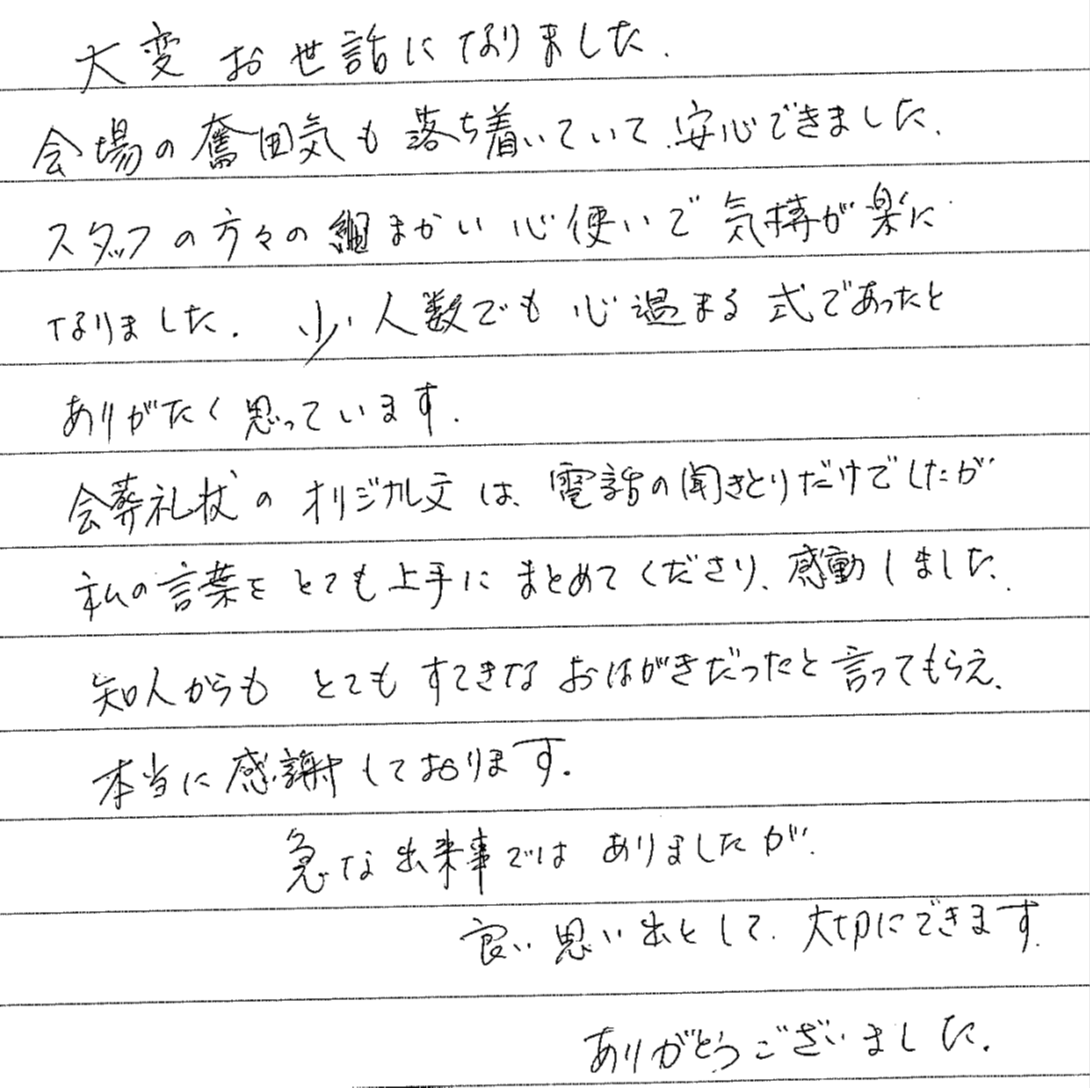 大変お世話になりました.
会場の奮囲気も落ち着いていて、安心できました、
スタッフの方々の細まかい心使いで気持が楽に
なりました. 少人数でも心過まる式であったと
ありがたく思っています.
会葬礼状のオリジナル文は、電話の聞きとりだけでしたが
私の言葉をとても上手にまとめてくださり、感動しました、
知人からも とてもすてきなおはがきだったと言ってもらえ、
本当に感謝しております.
急な出来事ではありましたが、
良い思い出として、大切にできます.
ありがとうございました.